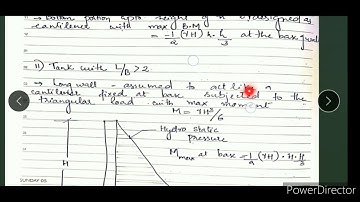 → bottom portion upto height of h is designed as
cantilever with max B.M
= 1/2 (γH) h. h/3 at the base
ii) Tank with L/B > 2.
→ Long wall - assumed to act like a
cantilever fixed at base subjected to the
triangular load with max moment
M = γH³/6
Hydro static
pressure
H
M max at base = 1/2 (γH) · H · H/3
SUNDAY 05
PowerDirector